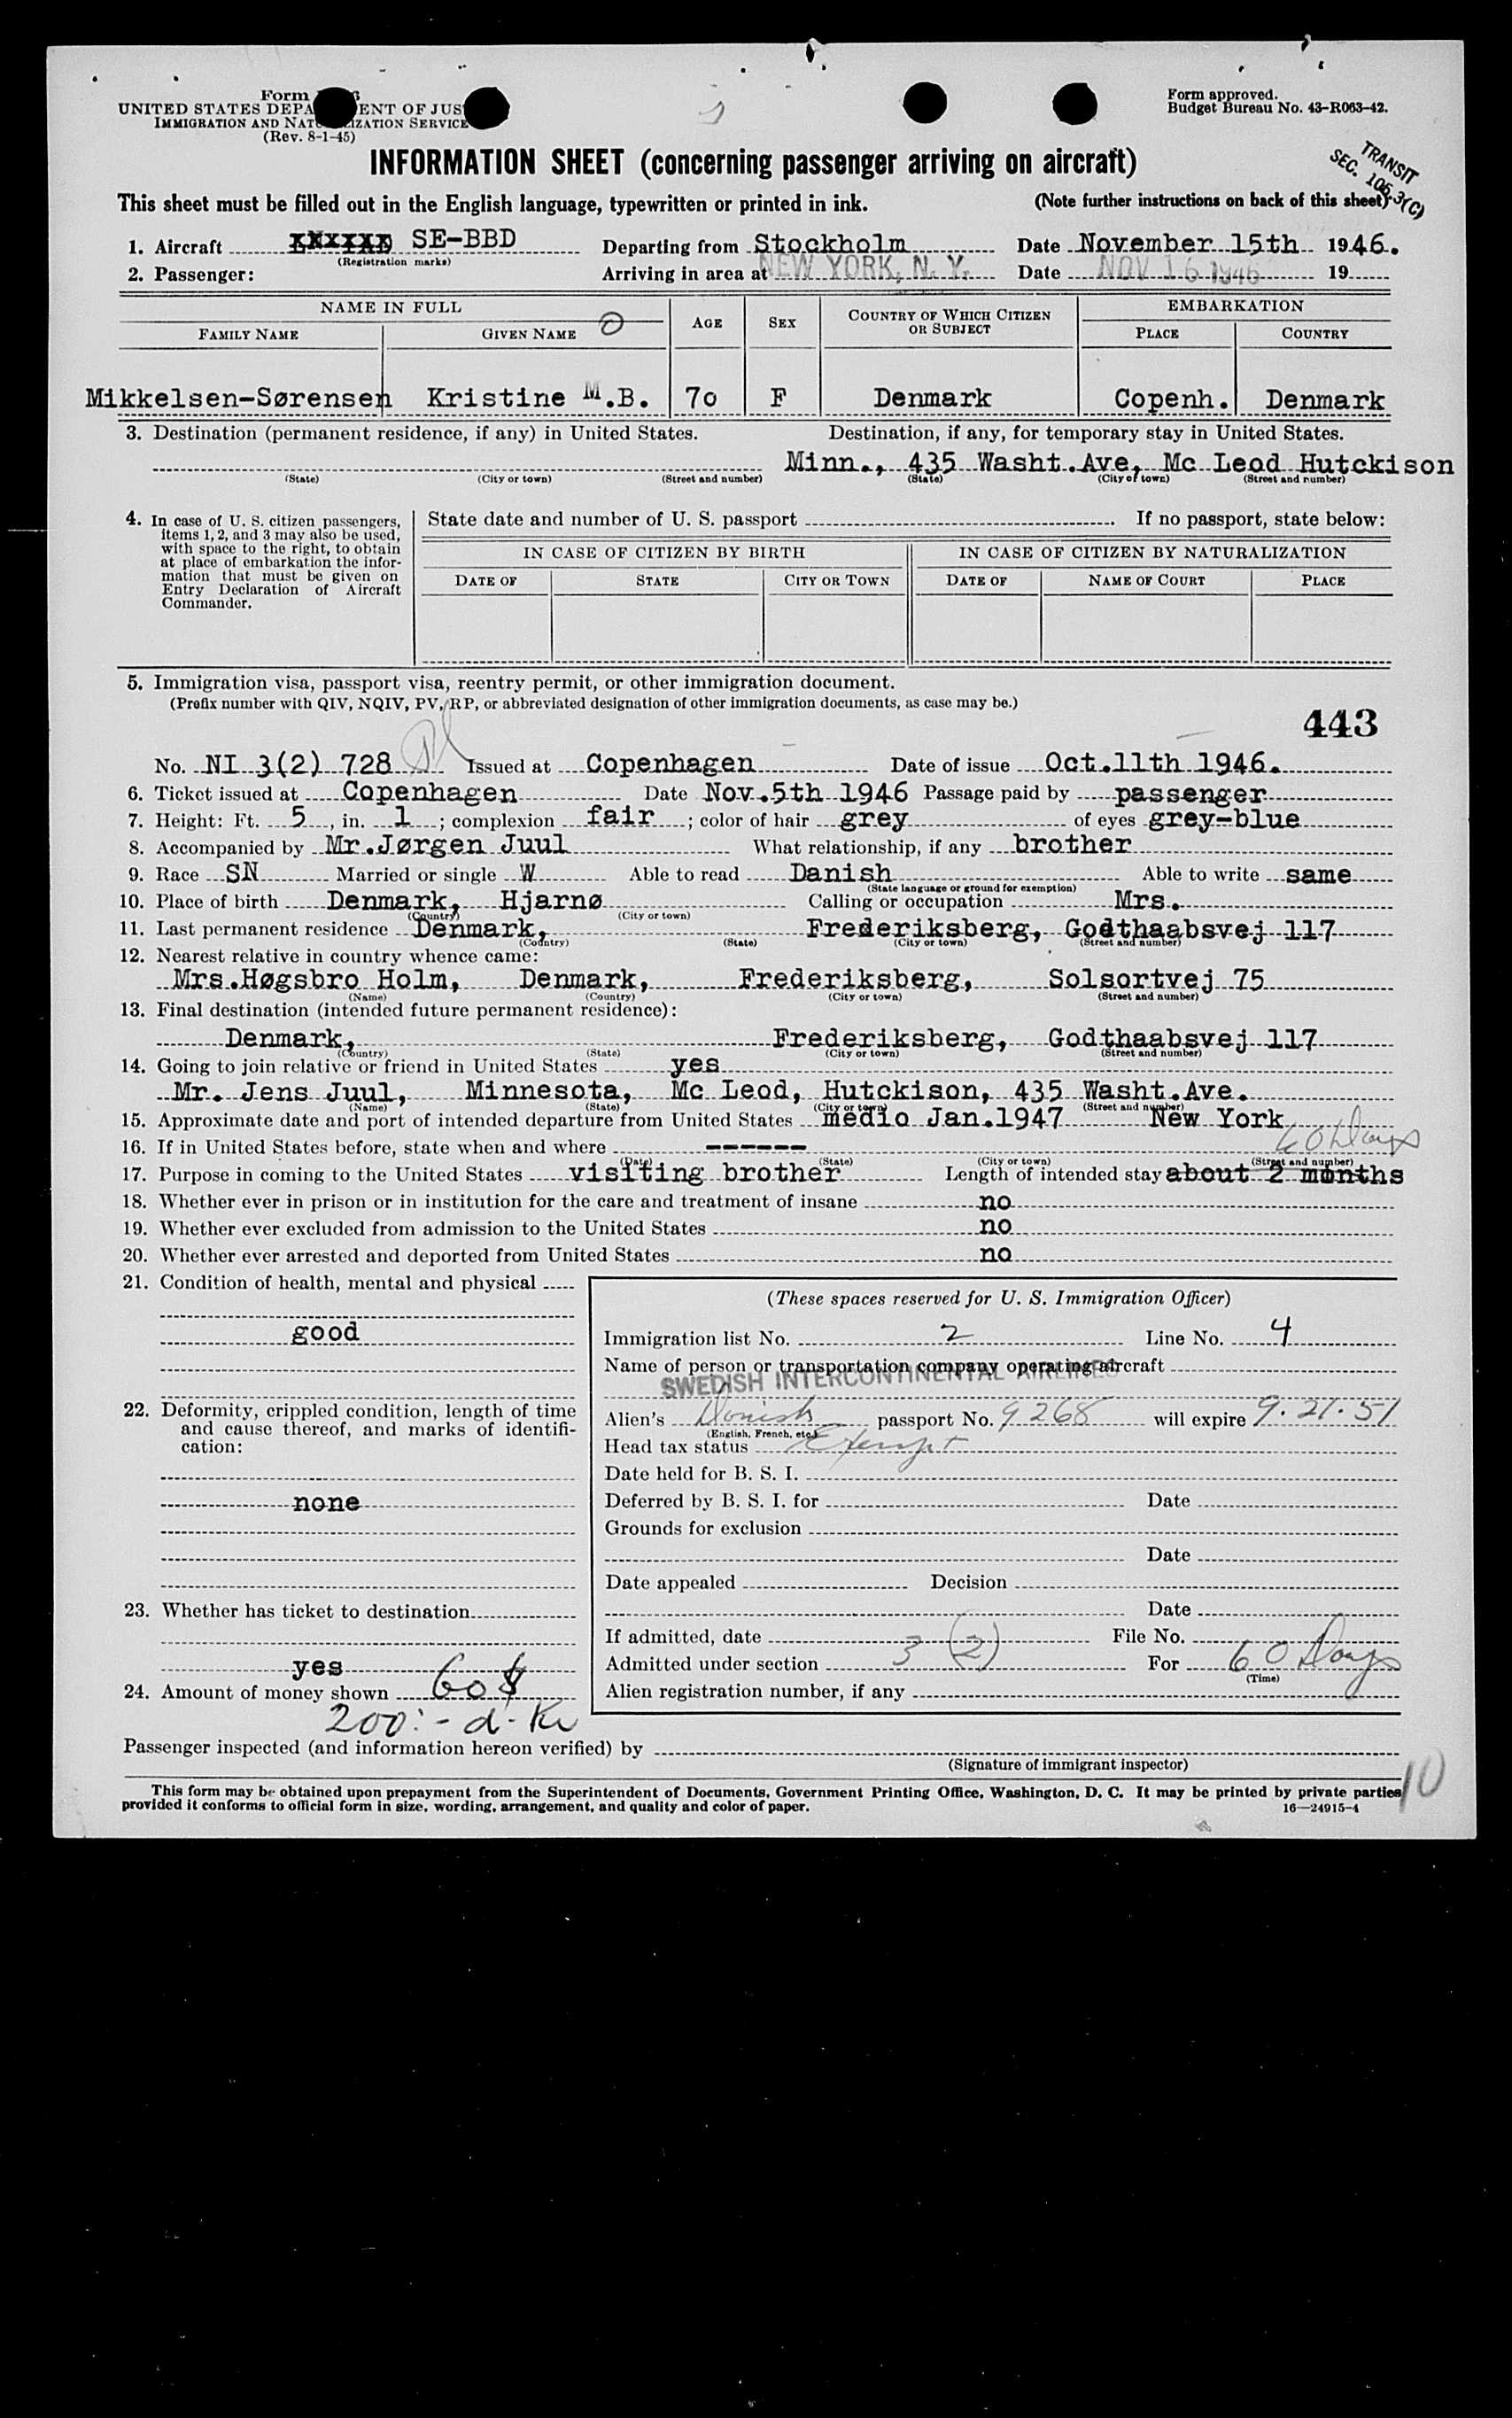 Form
UNITED STATES DEPA ENT OF JUS
IMMIGRATION AND NAT IZATION SERVICE
(Rev. 8-1-45)
Form approved.
Budget Bureau No. 43-R063-42.
INFORMATION SHEET (concerning passenger arriving on aircraft)
TRANSIT
SEC. 106.3(C)
This sheet must be filled out in the English language, typewritten or printed in ink. (Note further instructions on back of this sheet)
1. Aircraft SE-BBD Departing from Stockholm Date November 15th 1946.
(Registration marks)
2. Passenger: Arriving in area at NEW YORK, N. Y. Date NOV 16 1946 19
NAME IN FULL AGE SEX COUNTRY OF WHICH CITIZEN OR SUBJECT EMBARKATION
FAMILY NAME GIVEN NAME PLACE COUNTRY
Mikkelsen-Sørensen Kristine M.B. 7o F Denmark Copenh. Denmark
3. Destination (permanent residence, if any) in United States. Destination, if any, for temporary stay in United States.
Minn., 435 Washt.Ave, Mc Leod Hutckison
(State) (City or town) (Street and number) (State) (City or town) (Street and number)
4. In case of U. S. citizen passengers, items 1, 2, and 3 may also be used, with space to the right, to obtain at place of embarkation the information that must be given on Entry Declaration of Aircraft Commander.
State date and number of U. S. passport If no passport, state below:
IN CASE OF CITIZEN BY BIRTH IN CASE OF CITIZEN BY NATURALIZATION
DATE OF STATE CITY OR TOWN DATE OF NAME OF COURT PLACE
5. Immigration visa, passport visa, reentry permit, or other immigration document.
(Prefix number with QIV, NQIV, PV, RP, or abbreviated designation of other immigration documents, as case may be.)
443
No. NI 3(2) 728 Issued at Copenhagen Date of issue Oct.11th 1946.
6. Ticket issued at Copenhagen Date Nov.5th 1946 Passage paid by passenger
7. Height: Ft. 5, in. 1; complexion fair; color of hair grey of eyes grey-blue
8. Accompanied by Mr.Jørgen Juul What relationship, if any brother
9. Race SN Married or single W Able to read Danish Able to write same
(State language or ground for exemption)
10. Place of birth Denmark, Hjarnø Calling or occupation Mrs.
(Country) (City or town)
11. Last permanent residence Denmark, Frederiksberg, Godthaabsvej 117
(Country) (State) (City or town) (Street and number)
12. Nearest relative in country whence came:
Mrs.Høgsbro Holm, Denmark, Frederiksberg, Solsortvej 75
(Name) (Country) (City or town) (Street and number)
13. Final destination (intended future permanent residence):
Denmark, Frederiksberg, Godthaabsvej 117
(Country) (State) (City or town) (Street and number)
14. Going to join relative or friend in United States yes
Mr. Jens Juul, Minnesota, Mc Leod, Hutckison, 435 Washt.Ave.
(Name) (State) (City or town) (Street and number)
15. Approximate date and port of intended departure from United States medio Jan.1947 New York
16. If in United States before, state when and where -------
60 Days
(Date) (State) (City or town) (Street and number)
17. Purpose in coming to the United States visiting brother Length of intended stay about 2 months
18. Whether ever in prison or in institution for the care and treatment of insane no
19. Whether ever excluded from admission to the United States no
20. Whether ever arrested and deported from United States no
21. Condition of health, mental and physical
good
22. Deformity, crippled condition, length of time and cause thereof, and marks of identification:
none
23. Whether has ticket to destination
yes
24. Amount of money shown 60 $
200:- d. Kr
(These spaces reserved for U. S. Immigration Officer)
Immigration list No. 2 Line No. 4
Name of person or transportation company operating aircraft
SWEDISH INTERCONTINENTAL AIRLINES
Alien's Danish passport No. 9268 will expire 9.21.51
(English, French, etc.)
Head tax status Exempt
Date held for B. S. I.
Deferred by B. S. I. for Date
Grounds for exclusion
Date
Date appealed Decision
Date
If admitted, date File No.
Admitted under section 3 (2) For 60 Days
(Time)
Alien registration number, if any
Passenger inspected (and information hereon verified) by
(Signature of immigrant inspector)
10
This form may be obtained upon prepayment from the Superintendent of Documents, Government Printing Office, Washington, D. C. It may be printed by private parties
provided it conforms to official form in size, wording, arrangement, and quality and color of paper.
16—24915-4